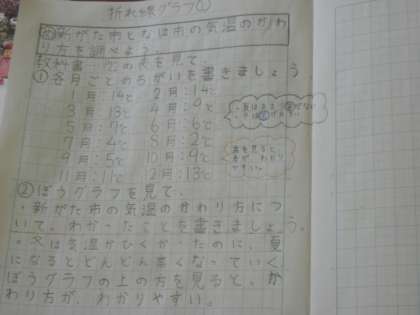 折れ線グラフ①
新がた市となは市の気温のかわ
り方を調べよう。
教科書 の表を見て、
①各月ごとのちがいを書きましょう
1月:14℃ 2月:14℃
3月:13℃ 4月:9℃
5月:7℃ 6月:6℃
7月:4℃ 8月:2℃
9月:5℃ 10月:9℃
11月:11℃ 12月:13℃
表を見ると
わかり
やすい。
②ぼうグラフを見て、
・新がた市の気温のかわり方につ
いて、わかったことを書きましょう。
・冬は気温がひくかったのに、夏
になるとどんどん暑くなっていく。
ぼうグラフの上の方を見ると、か
わり方が、わかりやすい。